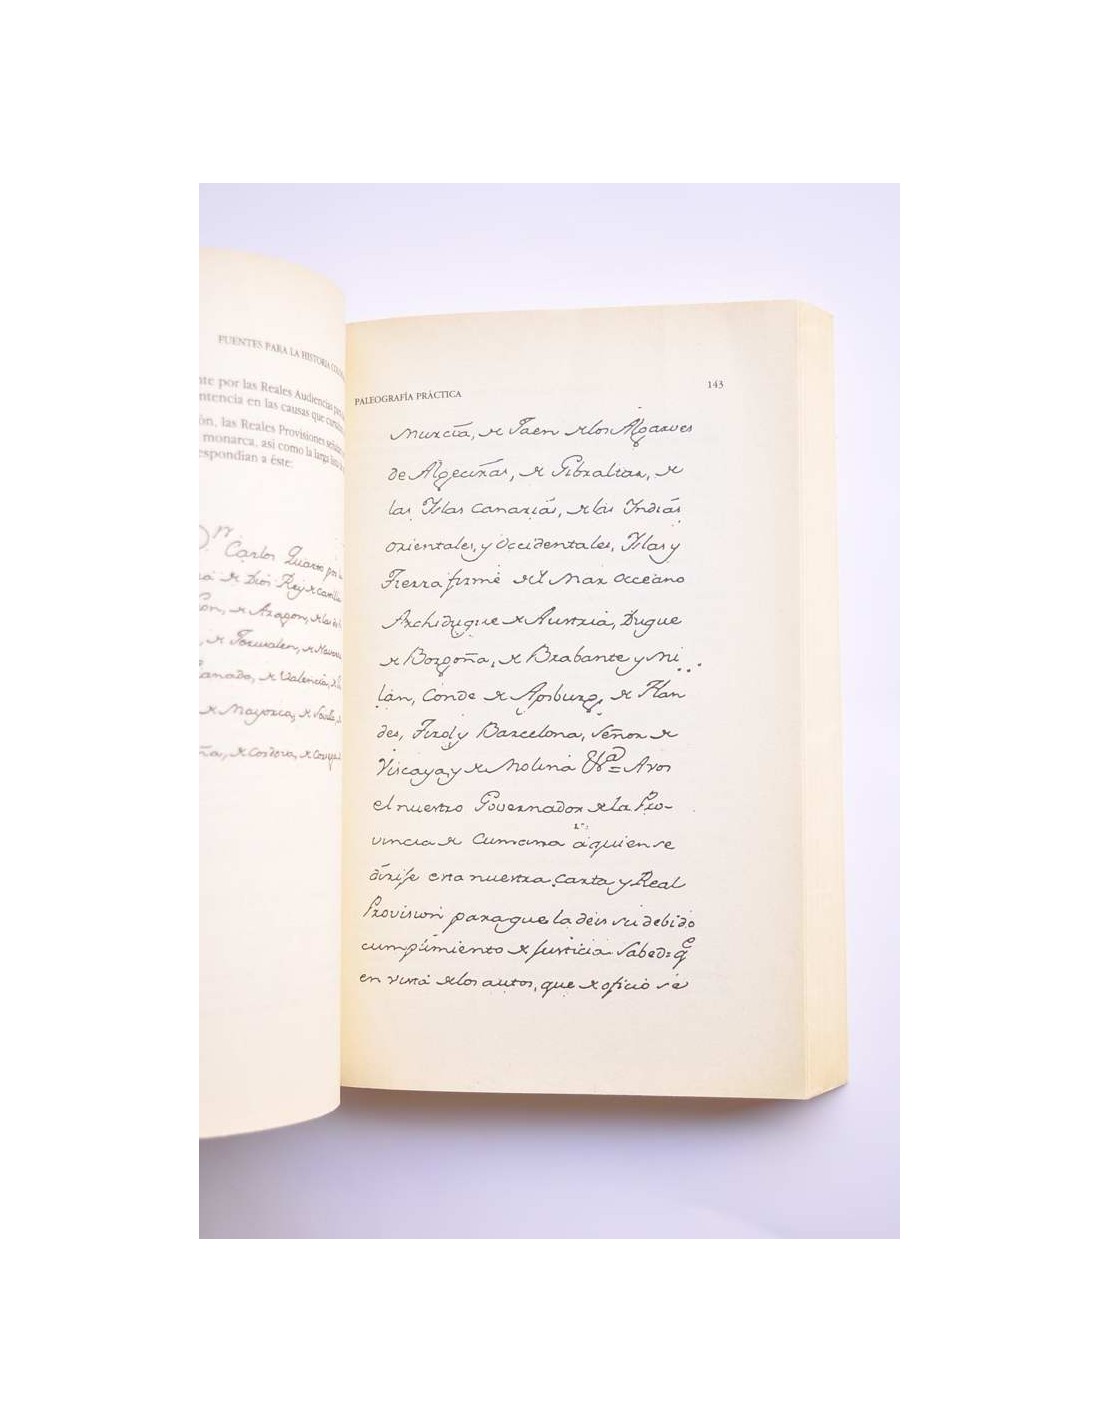 FUENTES PARA LA HISTORIA
nte por las Reales Audiencias
ntencia en las causas que
ón, las Reales Provisiones
monarca, así como la larga
espondían a éste:
Dn.
Carlos Quarto por
de Dios Rey de
de Aragon, de las
de Jerusalen, de
de Valencia,
de Mayorca, de
de Cordova, de
PALEOGRAFÍA PRÁCTICA
143
Murcia, de Jaen de los Algarves
de Algeciras, de Gibraltar, de
las Yslas Canarias, de las Indias
orientales, y Occidentales, Yslas y
Tierra firme del Mar Occeano
Archiduque de Austria, Duque
de Borgoña, de Brabante y Mi
lán, Conde de Apsburg, de Flan
des, Tirol y Barcelona, Señor de
Viscaya, y de Molina &a = A vos
el nuestro Governador de la Pro-
vincia de Cumana a quien se
dirije esta nuestra Carta y Real
Provision para que la deis su debido
cumplimiento de Justicia Sabed: qe
en vista de los autos, que de oficio se